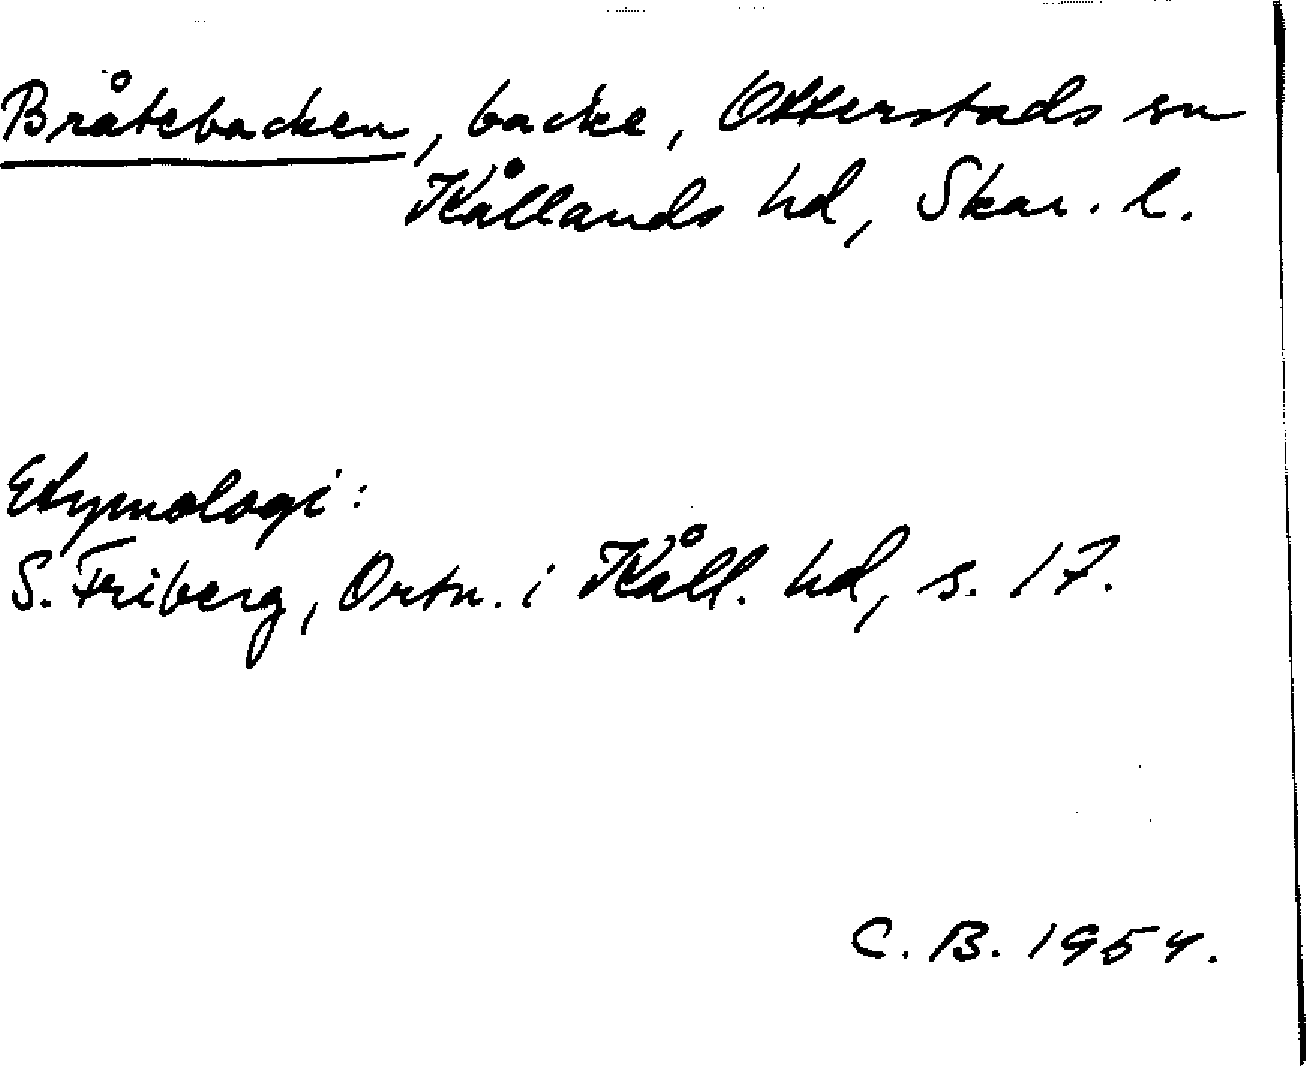 Bråtebacken, backe, Otterstads sn
Kållands hd, Skar. l.
Etymologi:
S. Friberg, Ortn. i Kåll. hd, s. 17.
C. B. 1954.